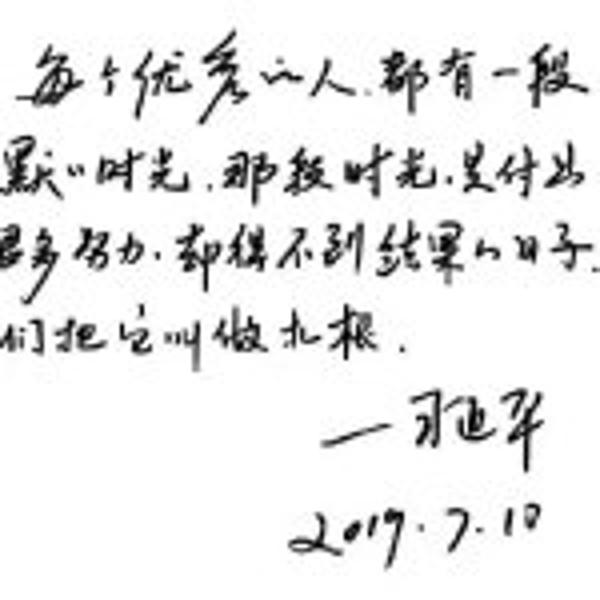 每个优秀的人.都有一段
默的时光.那段时光.是付出
很多努力.却得不到结果的日子.
们把它叫做扎根.
一习近平
2019.7.10